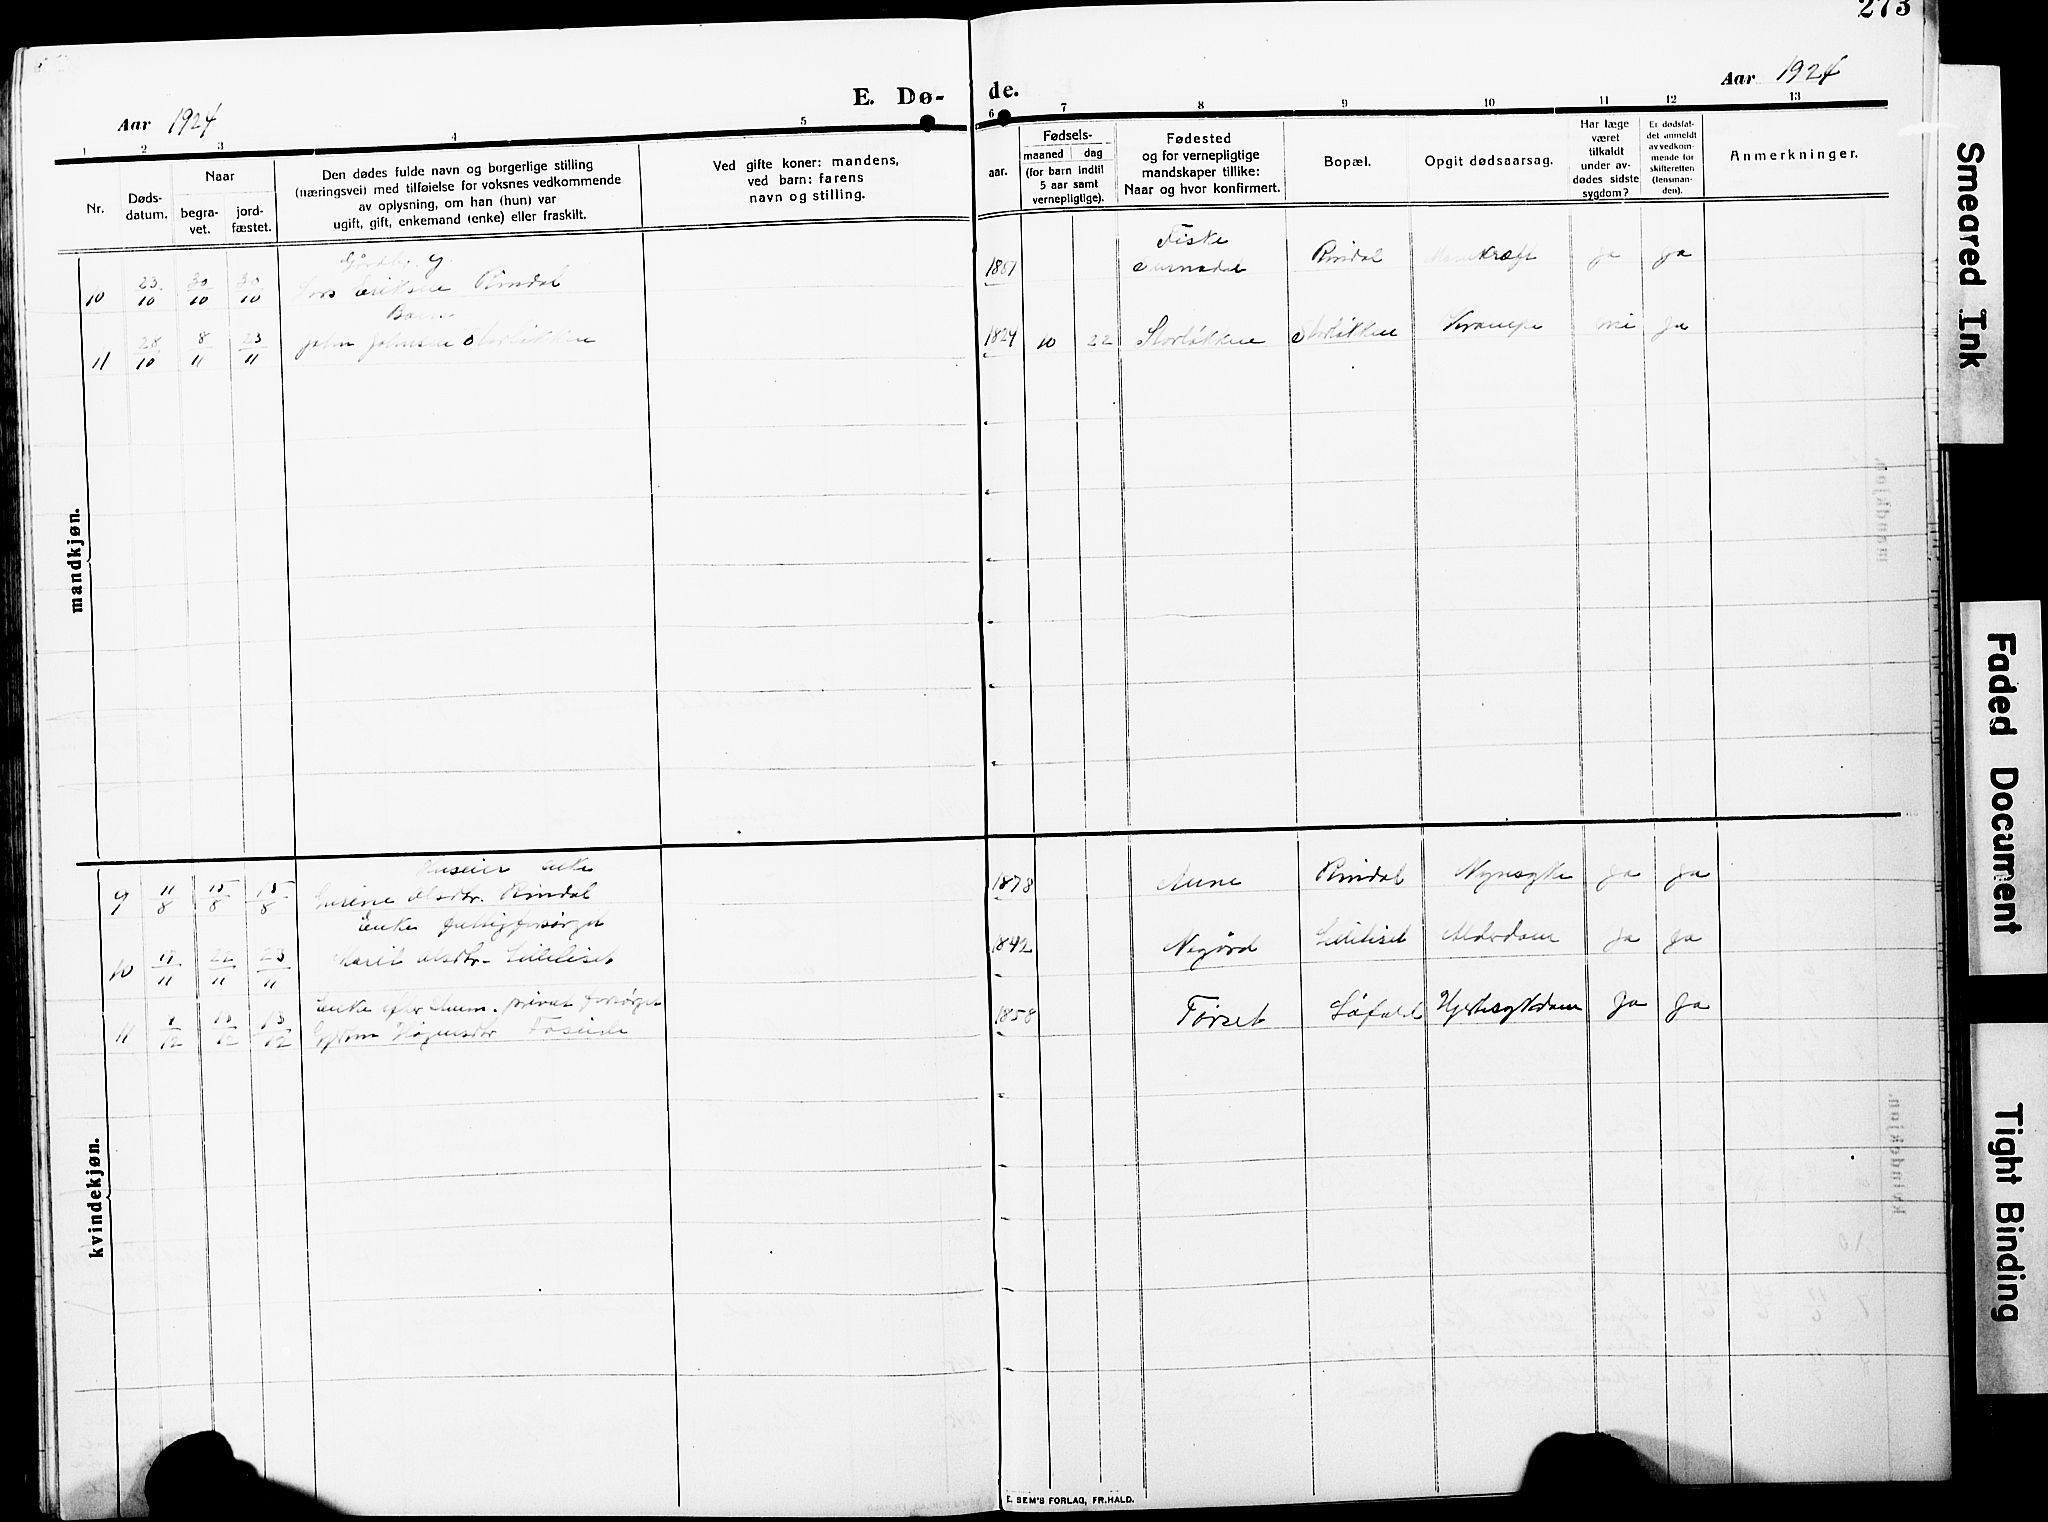 273
Aar 1924
E. Dø-
de.
Aar 1924
1 2 3 4 5 6 7 8 9 10 11 12 13
Nr.
Døds-
datum.
Naar
begra-
vet.
jord-
fæstet.
Den dødes fulde navn og borgerlige stilling
(næringsvei) med tilføielse for voksnes vedkommende
av oplysning, om han (hun) var
ugift, gift, enkemand (enke) eller fraskilt.
Ved gifte koner: mandens,
ved barn: farens
navn og stilling.
aar.
Fødsels-
maaned dag
(for barn indtil
5 aar samt
vernepligtige).
Fødested
og for vernepligtige
mandskaper tillike:
Naar og hvor konfirmert.
Bopæl.
Opgit dødsaarsag.
Har læge
været
tilkaldt
under av-
dødes sidste
sygdom?
Er dødsfal-
det anmeldt
av vedkom-
mende for
skifteretten
(lensman-
den).
Anmerkninger.
mandkjøn.
Gårdbr. g.
10 23/10 30/10 30/10 Lars Eriksen Rindal
Fiske
1861 Surnadal Rindal Ja Ja
Barn
11 28/10 8/11 23/11 John Johnsen Storløkken
1924 10 22 Storløkken Storløkken Krampe nei Ja
kvindekjøn.
Huseier enke
9 11/8 15/8 15/8 Olsdtr. Rindal
1878 Aune Rindal Nyresyke Ja Ja
Enke fattigforsørget
10 15/11 22/11 23/11 Marit Olsdtr. Lilleliset
1842 Negård Lilleliset Alderdom Ja Ja
Enke efter privat forsørget
11 12 13/12 13/12 Høgensdtr
1858 Tørset Løfald Hjertesykdom Ja Ja
E. SEM'S FORLAG, FR.HALD.
Smeared Ink
Faded Document
Tight Binding